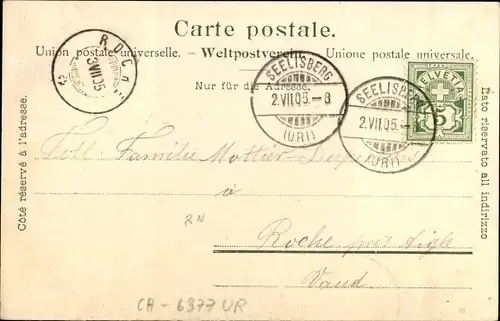 Carte postale.
Union postale universelle. - Weltpostverein. - Unione postale universale.
Nur für die Adresse.
Côté réservé à l'adresse.
Lato riservato all indirizzo
3VII05
SEELISBERG
2.VII.05.-8
(URI)
SEELISBERG
2.VII.05.-
(URI)
HELVETIA
5
Familie Mottier-
à
Roche près Aigle
Vaud
RN
CH - 6377 UR